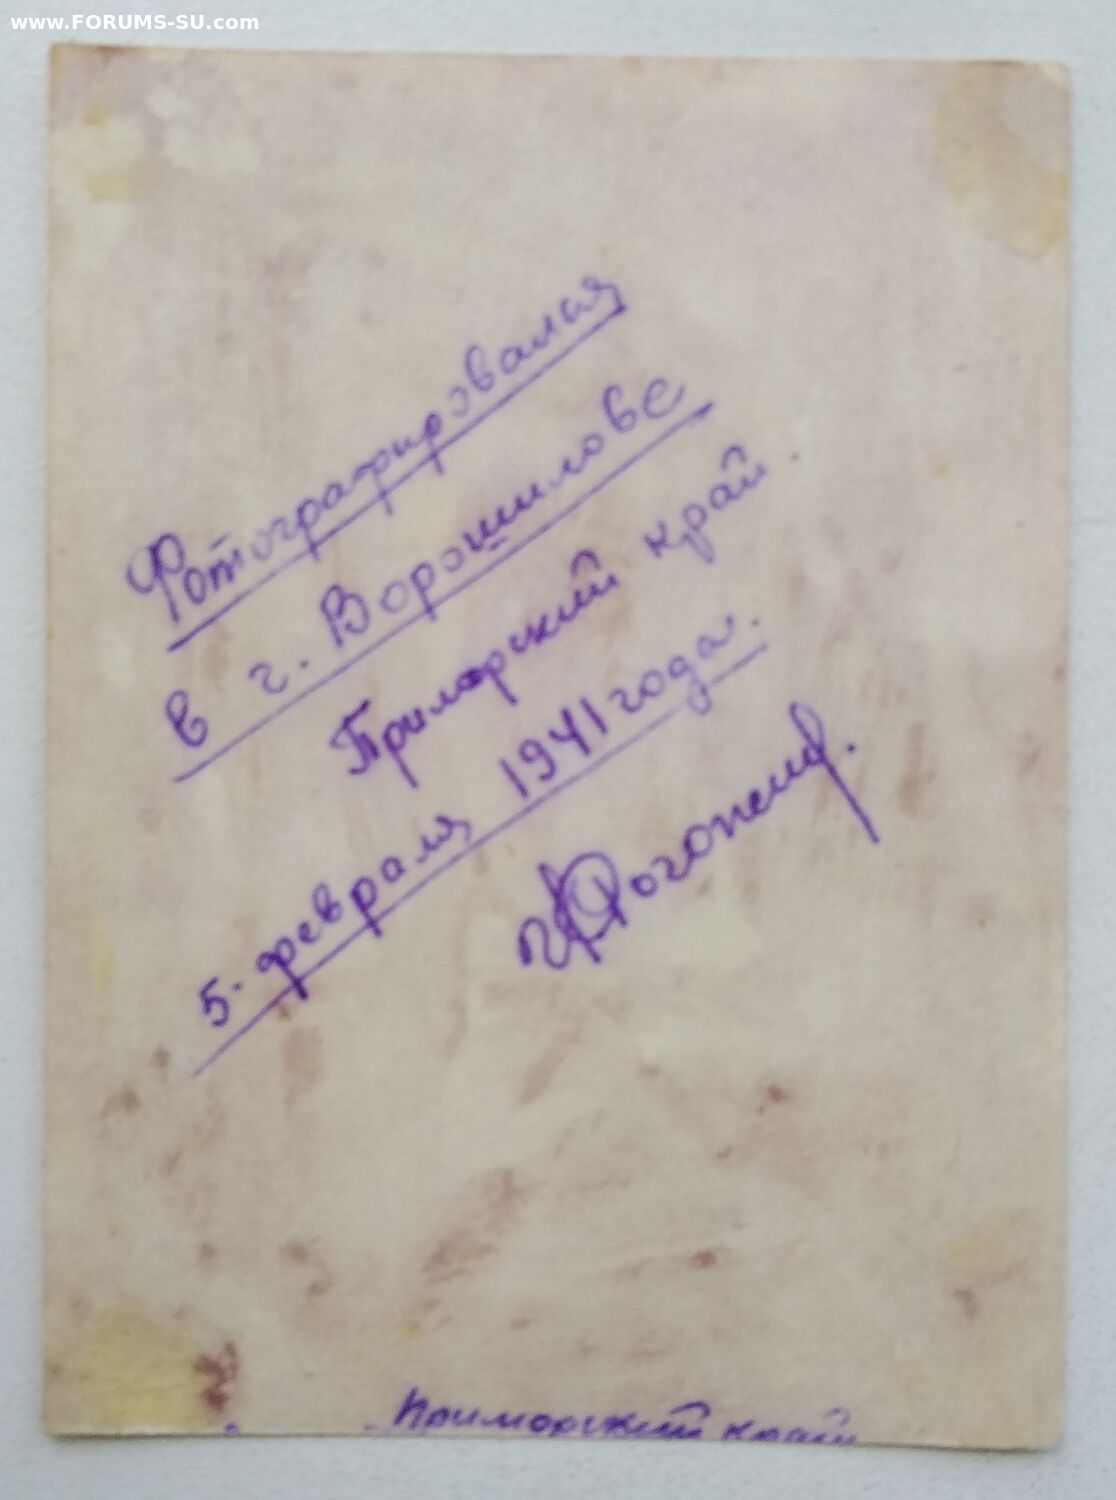 www.FORUMS-SU.com
Фотографировался
в г. Ворошилове
Приморский край.
5. февраля 1941 года.
Приморский край